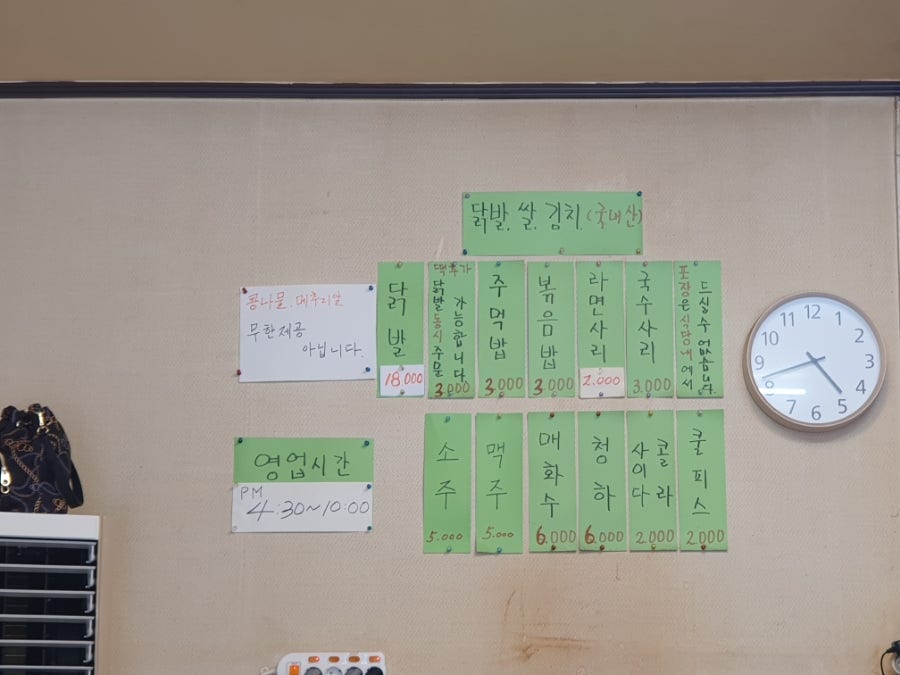 닭발. 쌀. 김치. (국내산)
콩나물. 메추리알
무한제공
아닙니다.
닭발
18.000
떡추가
닭발동시주문
가능합니다.
3.000
주먹밥
3.000
볶음밥
3.000
라면사리
2.000
국수사리
3.000
포장은식당내에서
드실수없습니다.
영업시간
PM
4:30~10:00
소주
5.000
맥주
5.000
매화수
6.000
청하
6.000
콜라
사이다
2.000
쿨피스
2.000
12
1
2
3
4
5
6
7
8
9
10
11